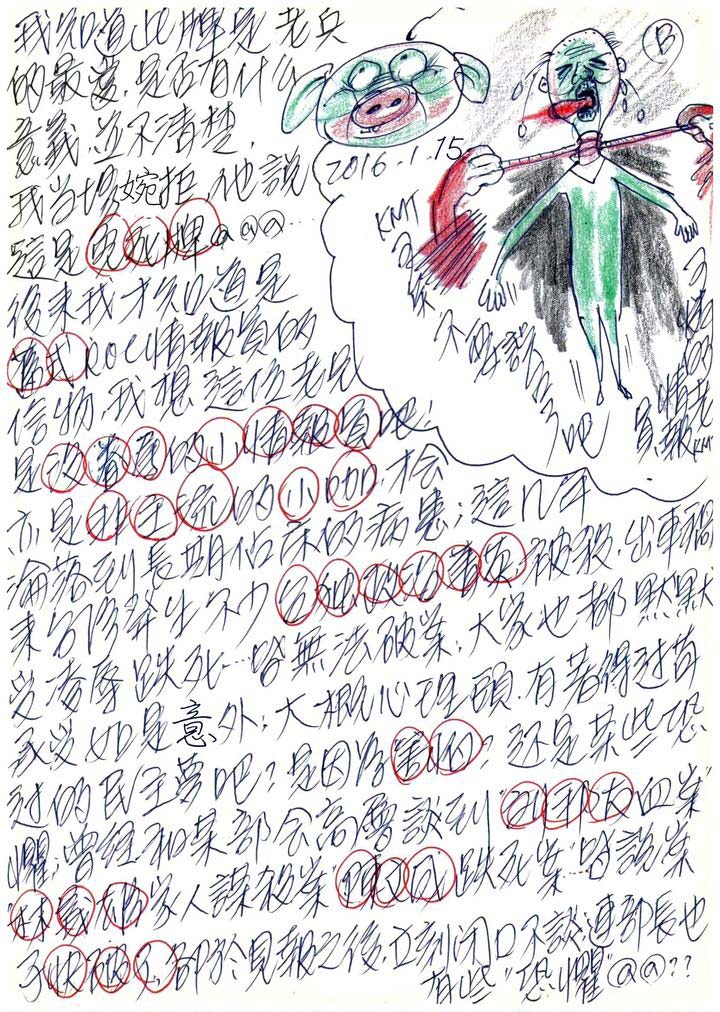 我知道此牌是老兵
的最愛,是否有什么
意義,並不清楚,
我当場婉拒,他説
這是免死牌@@@…
後来我才知道是
舊式ROC情報員的
信物,我想這位老兄
是没着落的小情報員吧!
亦是
的小咖,才会
淪落到長期佔床的病患;這几年
来台湾發生不少
被殺,出車禍
受凌辱 跌死…皆無法破案;大家也都默默
承受如是意外;大概心理頭,有著得过且
过的民主夢吧?是因為害怕?还是某些恐
懼;曾经和某部会高層談到"刘邦友血案"
"林義雄家人謀殺案""陳文成跌死案"皆說案
子快破了,卻於見報之後,立刻闭口不談,連部長也
有些"恐懼"@@??
B
2016.1.15
KMT
不要說
了吧
KMT